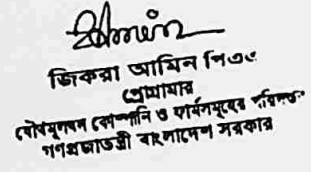 জিকরা আমিন পিএএ
প্রোগ্রামার
যৌথমূলধন কোম্পানি ও ফার্মসমূহের পরিদপ্তর
গণপ্রজাতন্ত্রী বাংলাদেশ সরকার